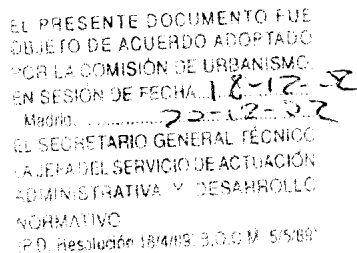 EL PRESENTE DOCUMENTO FUE
OBJETO DE ACUERDO ADOPTADO
POR LA COMISIÓN DE URBANISMO
EN SESIÓN DE FECHA 18-12-
Madrid
EL SECRETARIO GENERAL TÉCNICO
LA JEFA DEL SERVICIO DE ACTUACIÓN
ADMINISTRATIVA Y DESARROLLO
NORMATIVO
(P.D. Resolución 18/4/89, B.O.C.M. 5/5/89)